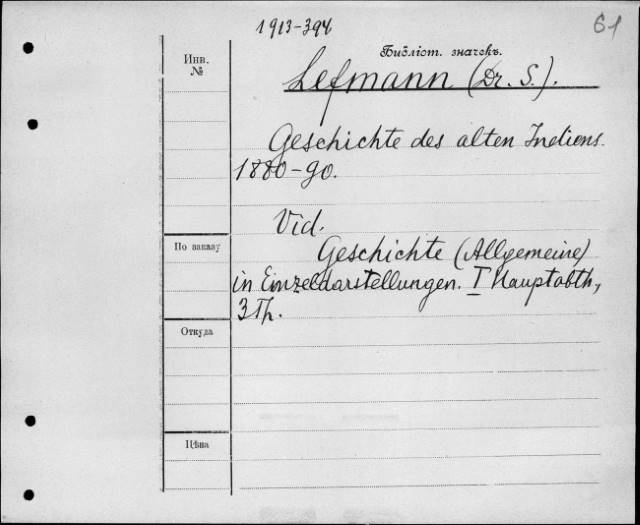 1913-394
61
Библіот. значекъ.
Инв.
№
Lefmann (Dr. S.).
Geschichte des alten Indiens.
1880-90.
Vid.
По заказу
Geschichte (Allgemeine)
in Einzeldarstellungen. I Hauptabth,
3 Th.
Откуда
Цѣна